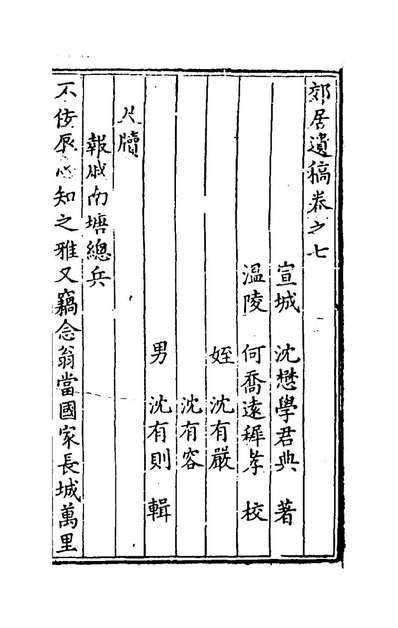 郊居遺稿卷之七
宣城 沈懋學君典 著
溫陵 何喬遠穉孝 校
姪 沈有嚴
沈有容
男 沈有則 輯
尺牘
報戚南塘總兵
不佞辰心知之雅又竊念翁當國家長城萬里